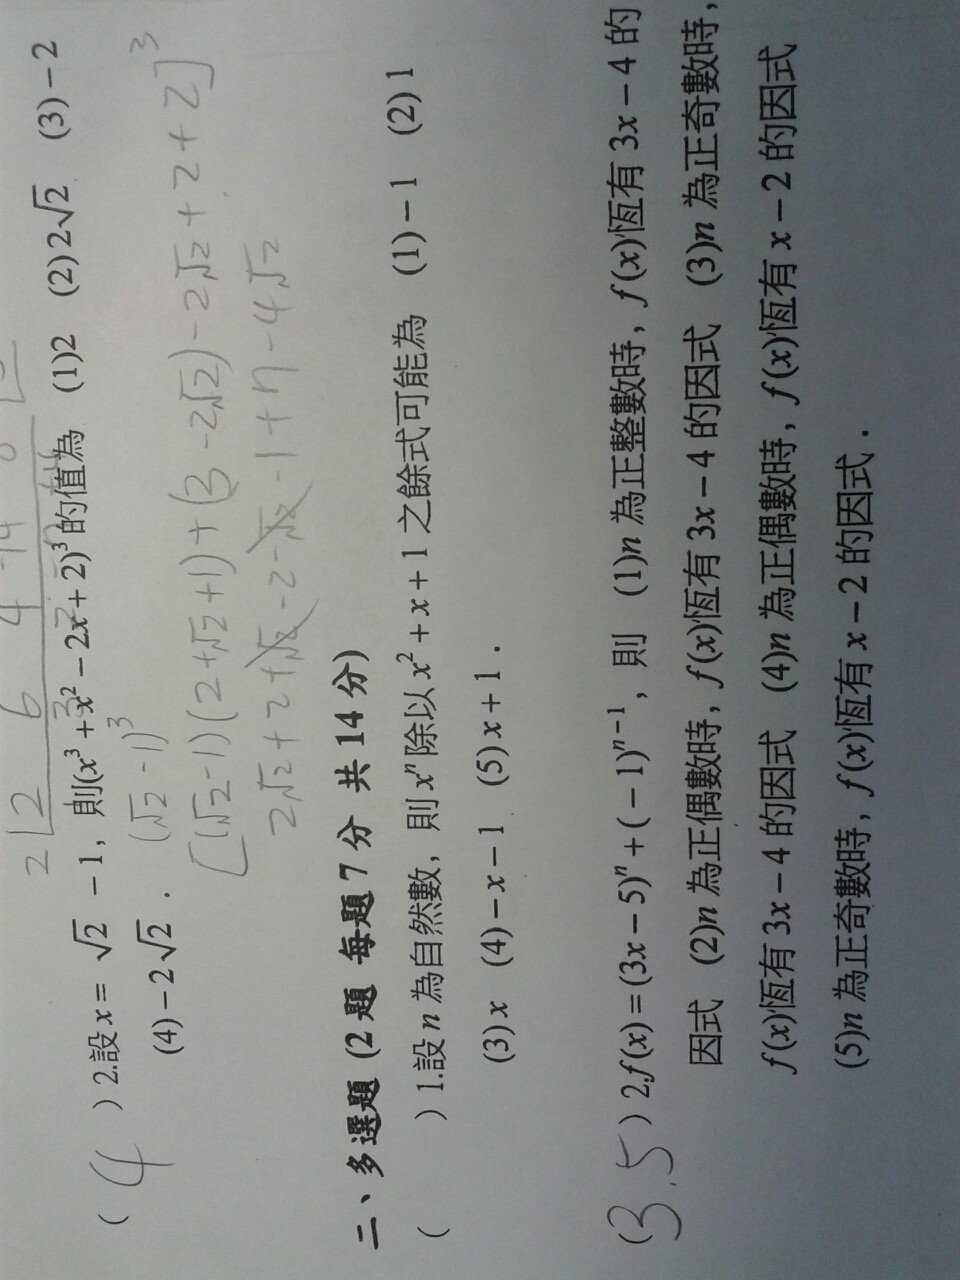 2 | 2 6 4
( 4 ) 2.設 x = √2 − 1, 則(x³ + x² − 2x + 2)³的值為 (1)2 (2)2√2 (3)−2
(4)−2√2 .
(√2−1)³
[(√2−1)(2+√2+1)+(3−2√2)−2√2+2+2]³
二、多選題 (2 題 每題 7 分 共 14 分)
( ) 1.設 n 為自然數, 則 xⁿ 除以 x² + x + 1 之餘式可能為 (1)−1 (2)1
(3)x (4)−x−1 (5)x+1 .
(3.5) 2.f(x)=(3x−5)ⁿ+(−1)ⁿ⁻¹, 則 (1)n 為正整數時, f(x)恆有 3x−4 的
因式 (2)n 為正偶數時, f(x)恆有 3x−4 的因式 (3)n 為正奇數時,
f(x)恆有 3x−4 的因式 (4)n 為正偶數時, f(x)恆有 x−2 的因式
(5)n 為正奇數時, f(x)恆有 x−2 的因式 .